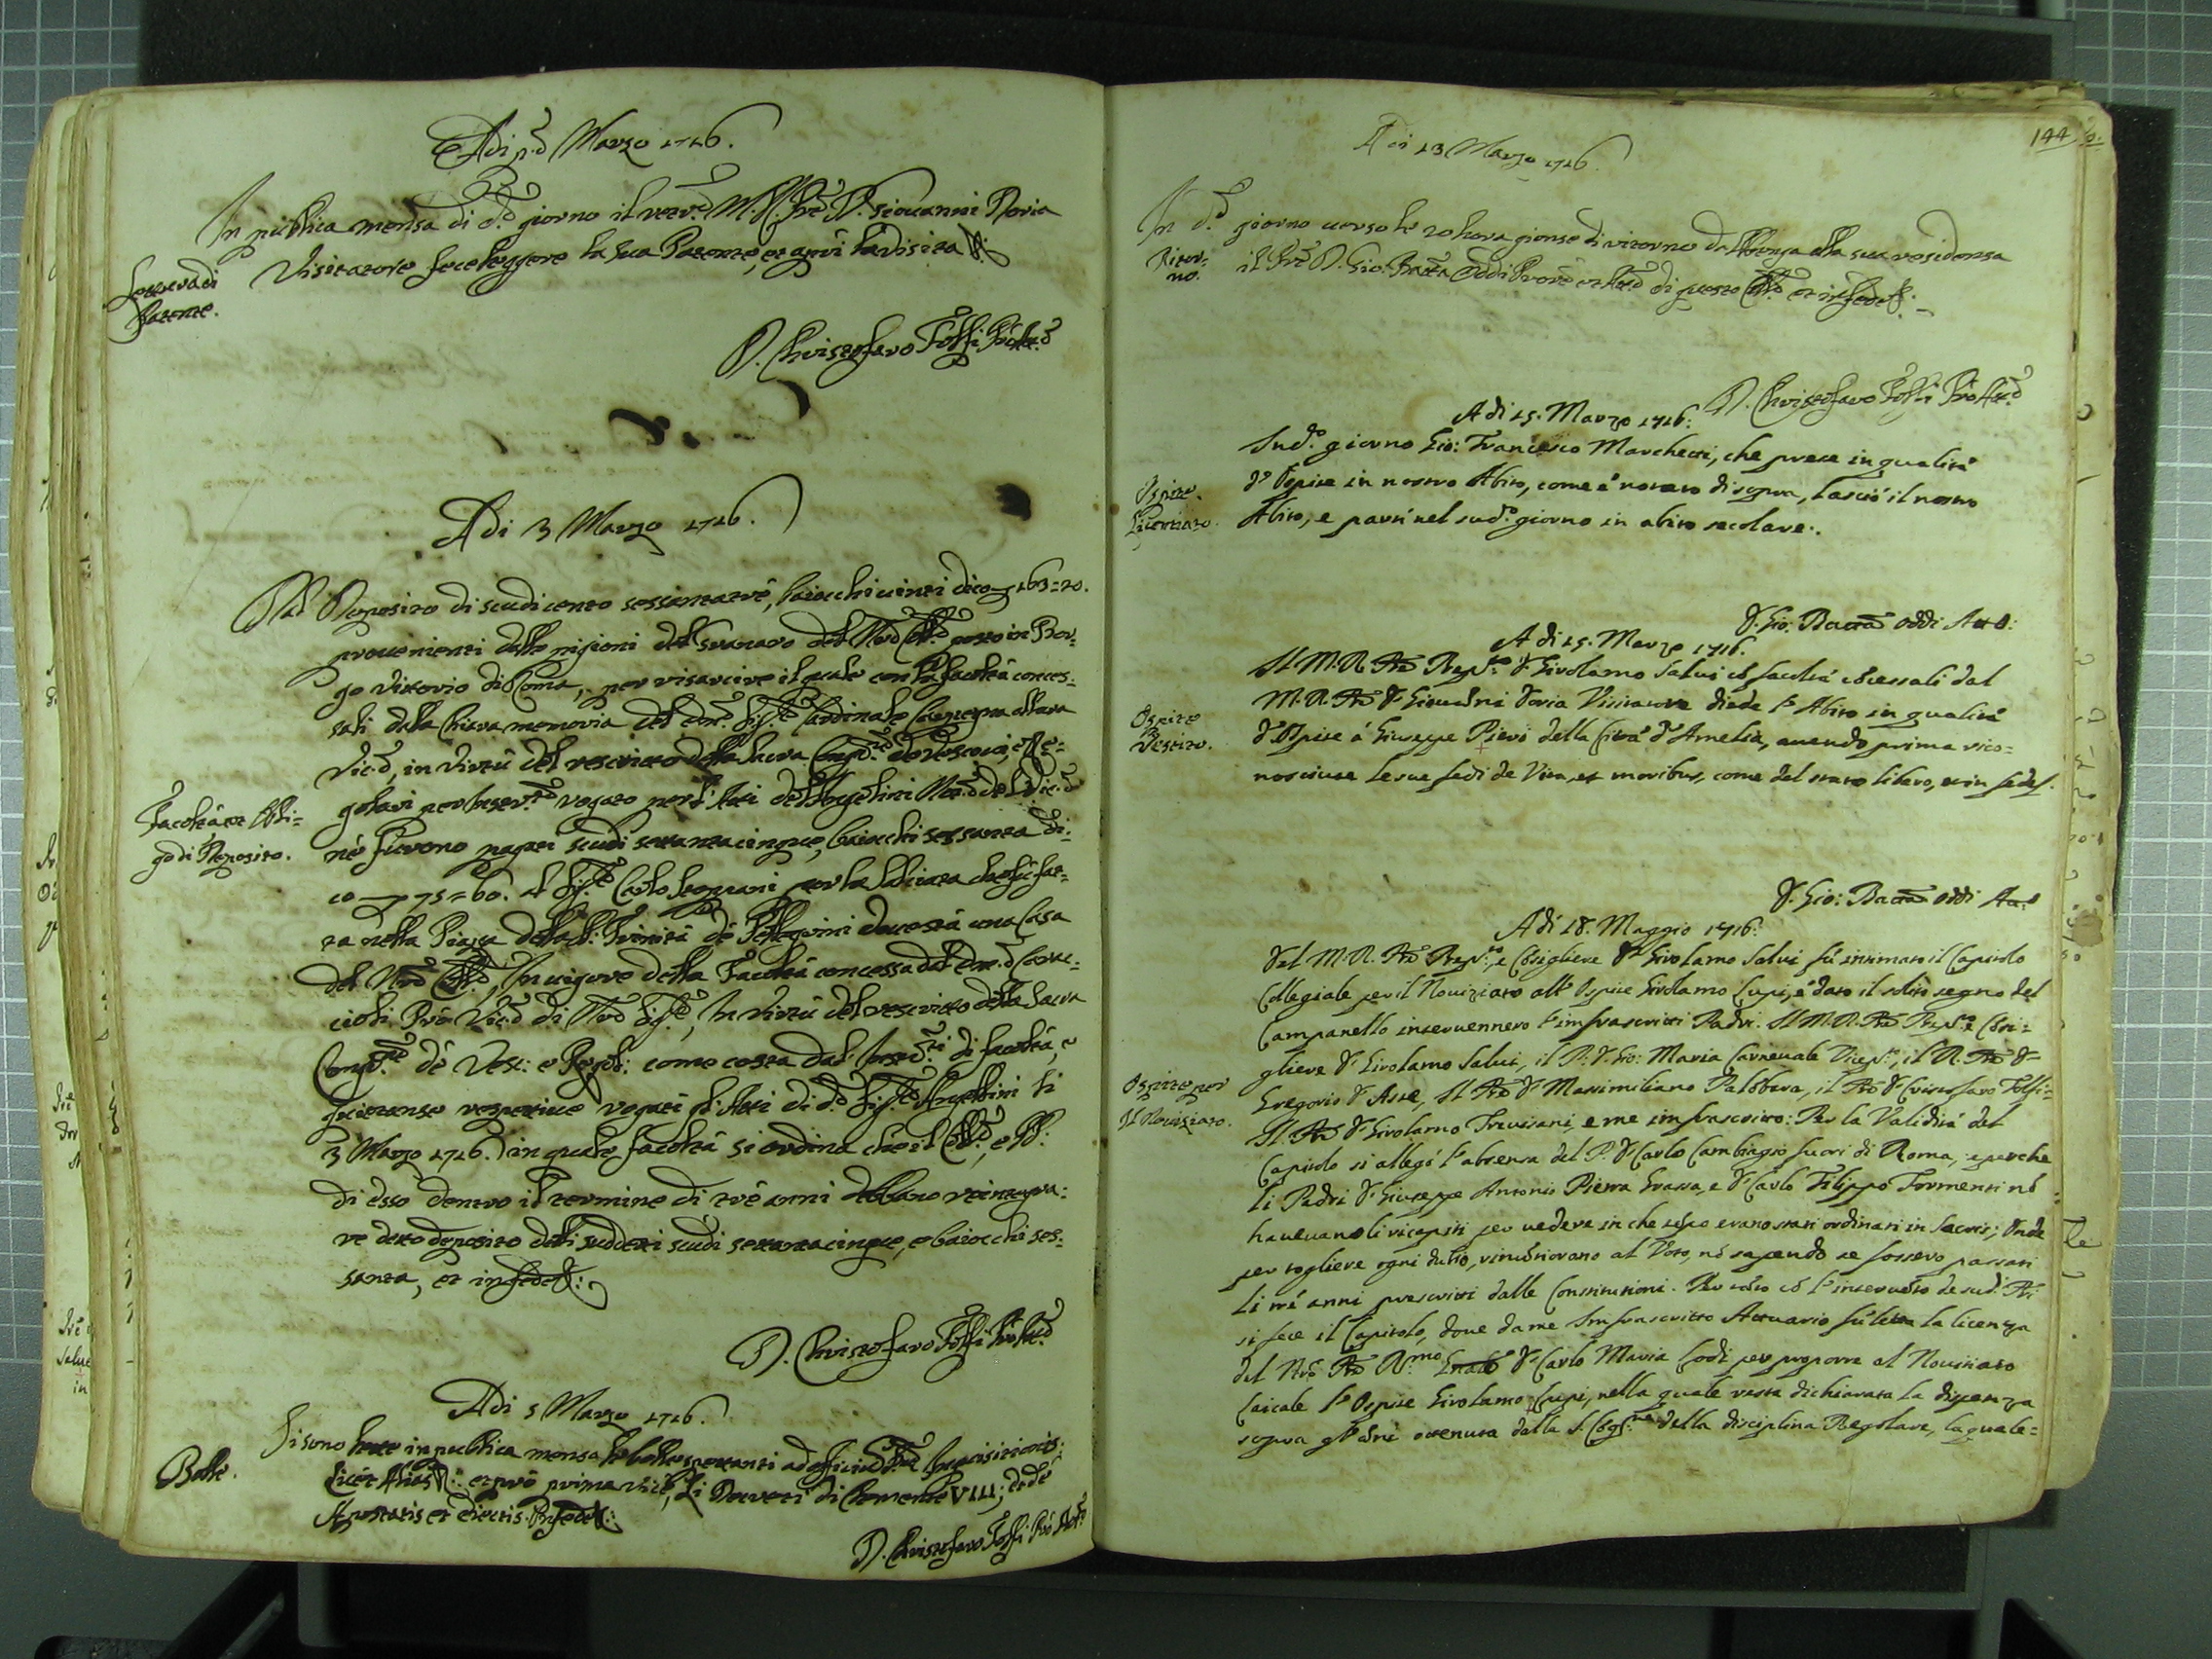 Adi p.º Marzo 1716.
In publica mensa di d.º giorno il rev.do M. R. Prê D. Giovanni Doria
Visitatore fece leggere la sua Patente, et aprì la visita &:
Lettura di
Patente.
D. Christofaro Folfi Prô Att.º
Adi 3 Marzo 1716.
Dal Deposito di scudi cento sessantatrè, baiocchi vinti dico 163=20.
provenienti dalle pigioni del Granaro del Nrô Coll.º posto in Bor-
go Vittorio di Roma, per risarcire il quale con la facoltà conces-
sali dalla Chiara memoria del Em.º Sig.re Cardinale Carpegna allora
Vic.º, in virtù del rescritto della Sacra Cong.ne de Vescovi, e Re-
golari per Inser.to rogato per gl'Atti dell'Angelini Not.º del Vic.º
Facoltà et Obli-
go di Deposito.
nè furono pagati scudi settantacinque, baiocchi sessanta di-
co 75=60. al Sig.re Carlo per la selciata che fù fat-
ta nella Piazza della SS: Trinità de Pellegrini dove stà una Casa
del Nrô Coll.º, In vigore della Facoltà concessa dal Em.º Parac-
cioli Prô Vic.º di Nrô Sig.re, In virtù del rescritto della Sacra
Cong.ne de Vesc: e Regol: come costa dal' di facoltà, e
quietanze respettive rogati gl'Atti di d.º Sig.re Angellini li
3 Marzo 1716. in quale facoltà si ordina che il Coll.º, e PP:
di esso dentro il termine di trè anni debbano reintegra-
re detto deposito delli suddetti scudi settantacinque, e baiocchi ses-
santa, et in fede &:
D. Christofaro Folfi Prô Att.º
Adi 5 Marzo 1716.
Bolle.
Si sono lette in publica mensa le bolle spettanti ad officiũ Inquisitionis:
Licet Alias &: et prô prima vice, Li Decreti di Clemente VIII; et de
Apostatis et eiectis. In fede &:
D. Christofaro Folfi Prô Att.º
144
Adi 13 Marzo 1716.
In d.º giorno verso le 20 hora gionse di ritorno dall'Avenza alla sua residenza
Ritor-
no.
il Prê D. Gio: Batta Oddi Prore et Att.º di questo Coll.º et in fede &:
D. Christofaro Folfi Prô Att.º
A di 15. Marzo 1716:
Sud.º giorno Gio: Francesco Marchetti, che prese in qualità
d'Ospite in nostro Abito, come è notato di sopra, lasciò il nostro
Abito, e partì nel sud.º giorno in abito secolare.
Ospite
Licenziato.
D. Gio: Batta Oddi Att.º:
A di 15. Marzo 1716.
Il M.R. Prê Prep.to D. Girolamo Salvi cõ facultà cõcessali dal
M.R. Prê D. Giovãni Doria Visitatore diede l'Abito in qualità
d'Ospite à Giuseppe Pieri della Città d'Amelia, avendo prima rico-
nosciute le sue fedi de Vita, et moribus, come del stato libero, et in fede &.
Ospite
Vestito.
D. Gio: Batta Oddi Att.º
A di 18. Maggio 1716:
Dal M.R. Prê Prep.to, e Cõsigliere D. Girolamo Salvi fù intimato il Capitolo
Collegiale per il Noviziato all'Ospite Girolamo Lupi, e dato il solito segno del
Campanello intervennero l'infrascritti Padri. Il M.R. Prê Prep.to e Cõsi-
gliere D. Girolamo Salvi, il P. D. Gio: Maria Carnevale Vicep.to, il R. Prê D.
Gregorio D'Asse, Il Prê D. Massimiliano Palõbara, il Prê D. Christofaro Folfi-
Il Prê D. Girolamo Trevisani, e me infrascritto: Per la Validità del
Capitolo si allegò l'absenza del P. D. Carlo Cambiagio fuori di Roma, e perche
li Padri D. Giuseppe Antonio Pietra Grassa, e D. Carlo Filippo Formenti nõ
havevano li ricapiti per vedere in che tẽpo erano stati ordinati in Sacris; Onde
per togliere ogni dubio, rinũtiorono al Voto, nõ sapendo se fossero passati
li trè anni prescritti dalle Constitutioni. Per tãto cõ l'intervẽto de sud.i Pri
si fece il Capitolo, dove da me Infrascritto Attuario fù letta la licenza
del Nrô Prê R.mo Gnãle D. Carlo Maria Lodi per proporre al Noviziato
Laicale l'Ospite Girolamo Lupi, nella quale resta dichiarata la dispenza
sopra gl'ãni ottenuta dalla S. Cõg.ne della disciplina Regolare, la quale=
Ospite per
Il Noviziato.